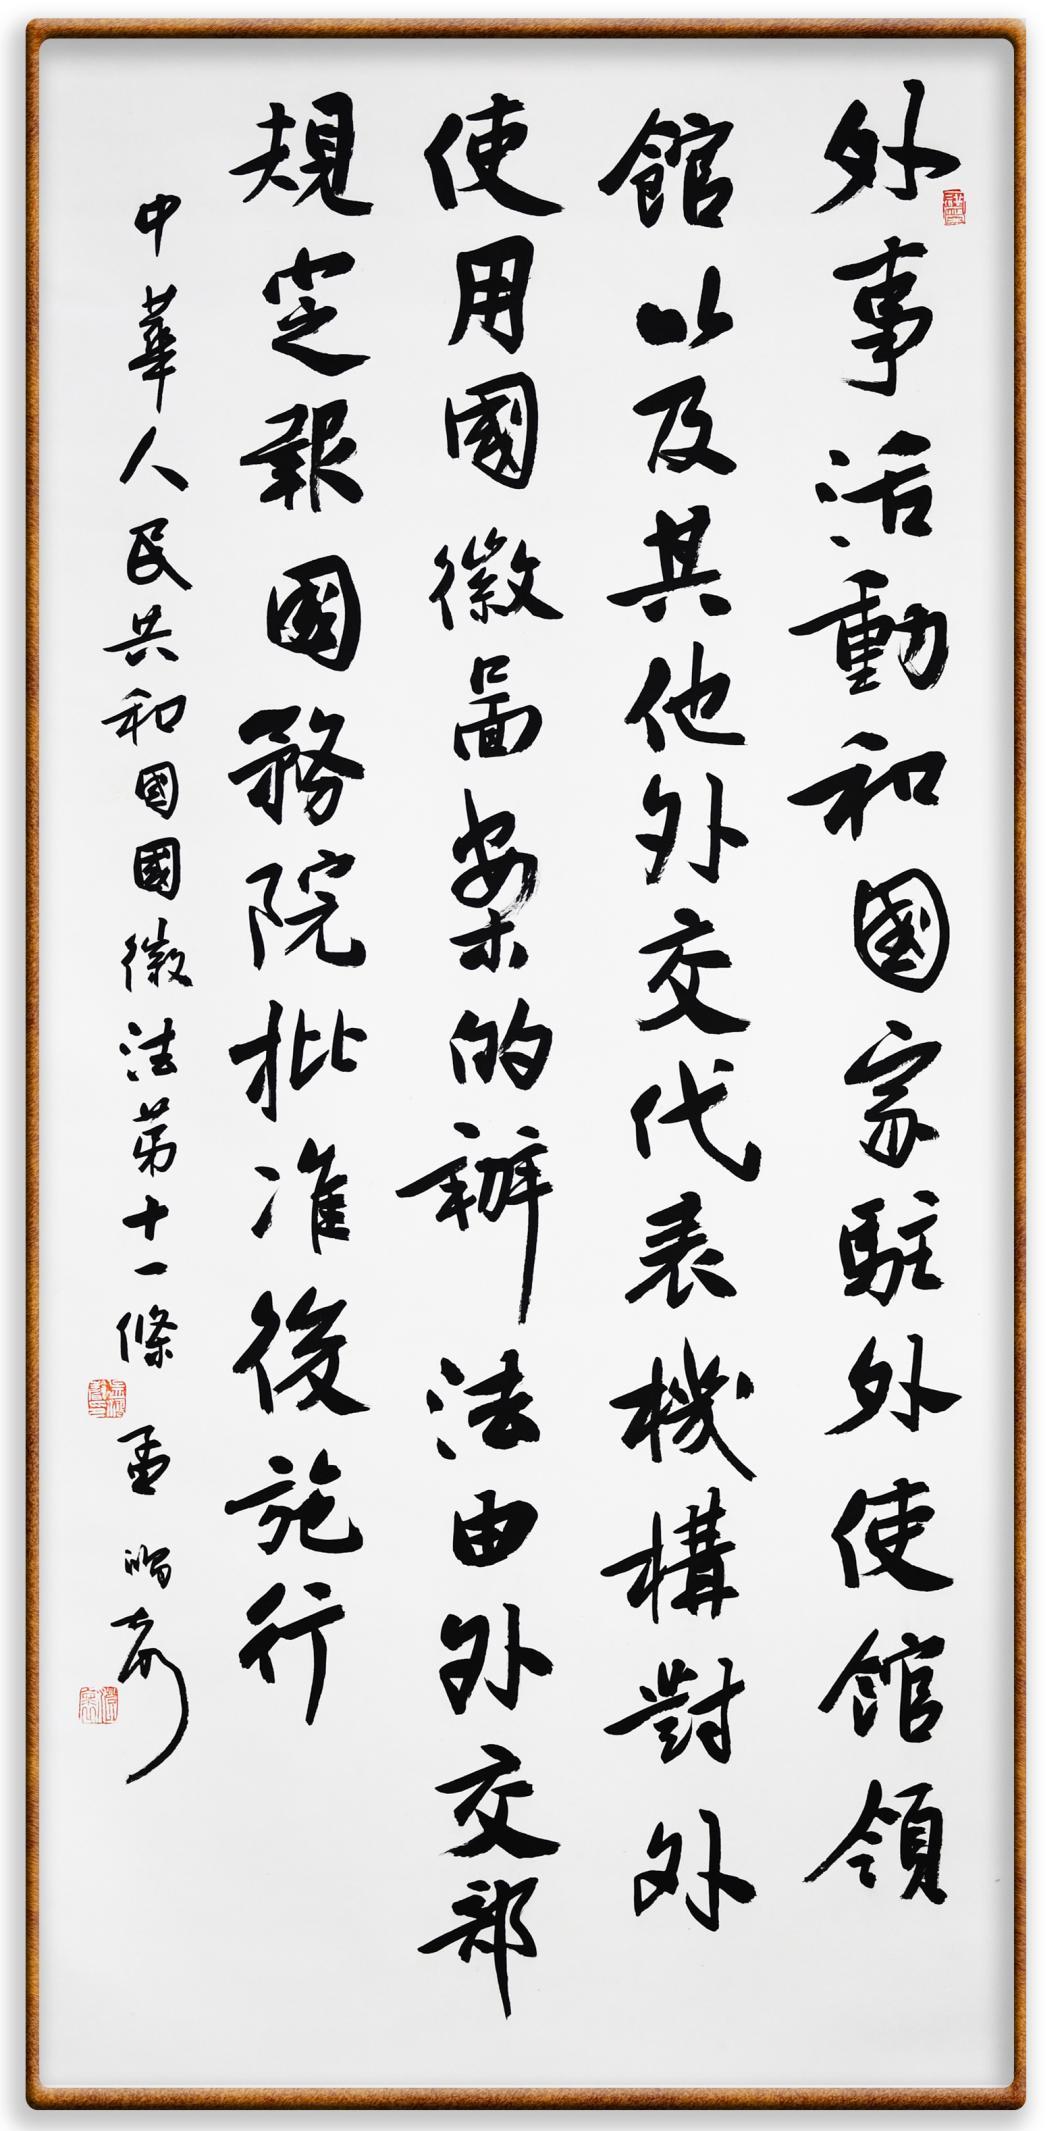 外事活動和國家駐外使館領
館以及其他外交代表機構對外
使用國徽圖案的辦法由外交部
規定報國務院批准後施行
中華人民共和國國徽法第十一條
孟鴻聲